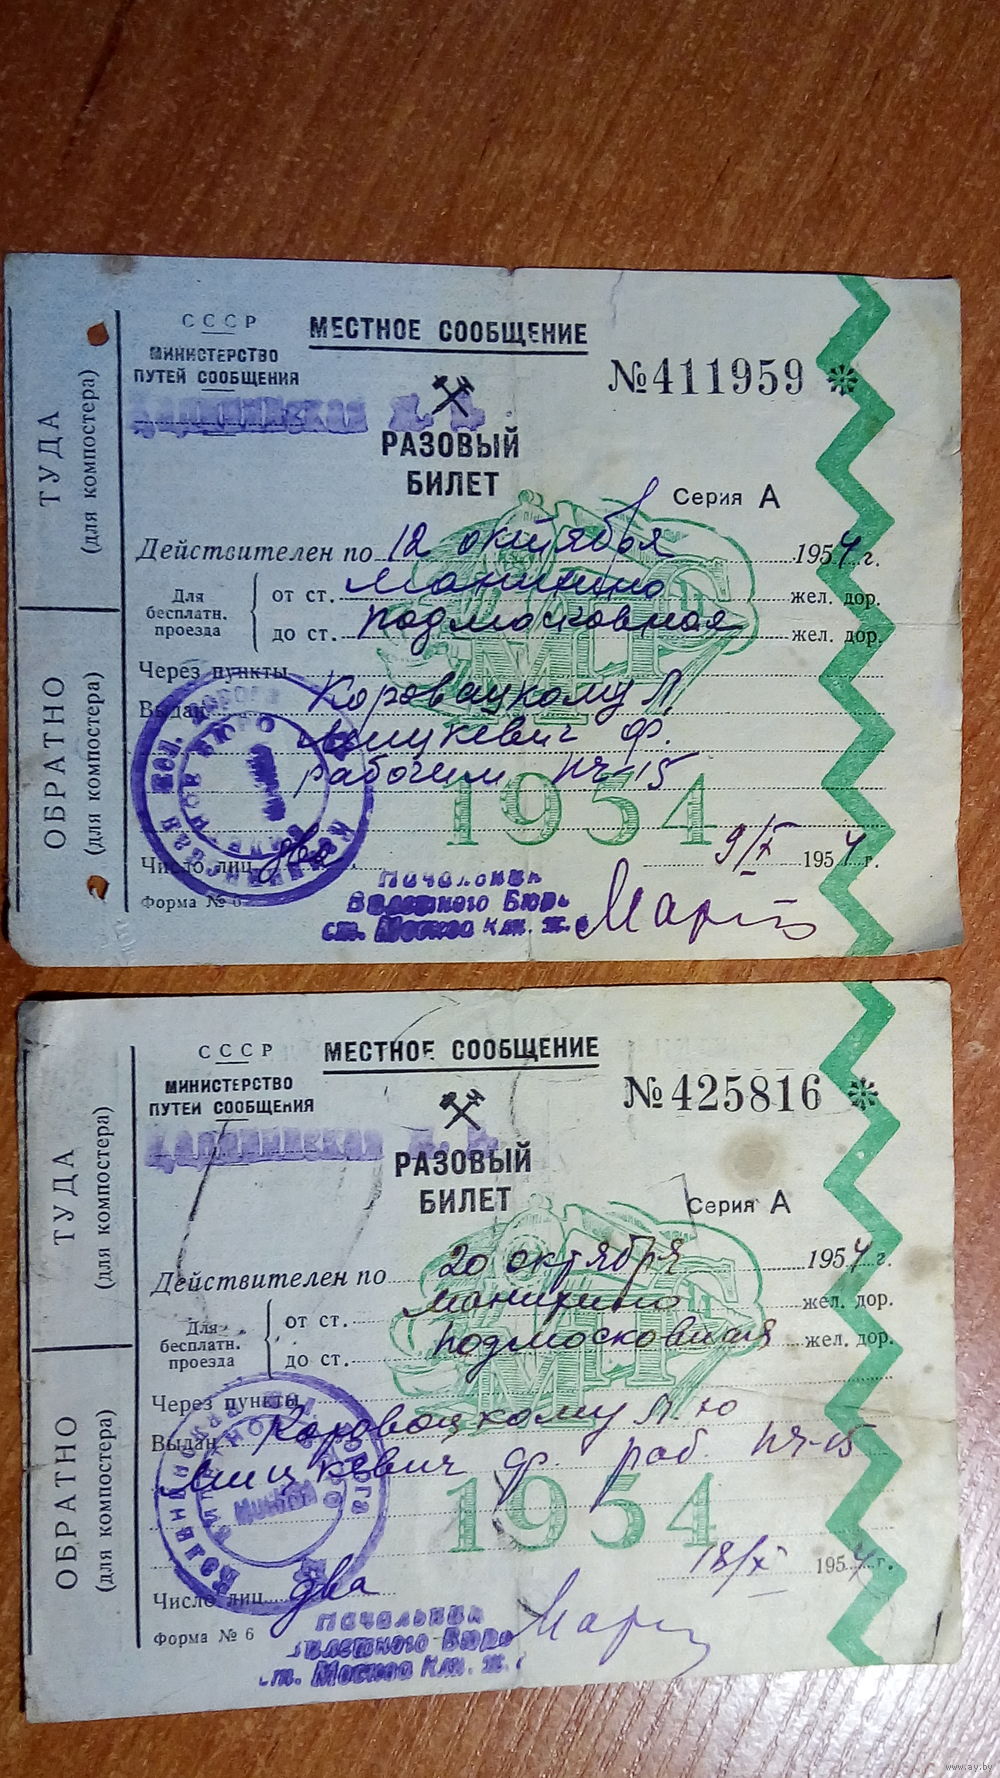 ТУДА
(для компостера)
ОБРАТНО
(для компостера)
СССР
МИНИСТЕРСТВО
ПУТЕЙ СООБЩЕНИЯ
Калининская Ж. Д.
МЕСТНОЕ СООБЩЕНИЕ
№411959
РАЗОВЫЙ
БИЛЕТ
Серия А
Действителен по 12 октября 1954 г.
Для бесплатн. проезда
от ст. Манихино жел. дор.
до ст. Подмосковная жел. дор.
МПС
Через пункты
Выдан Коровацкому Л.
Мицкевич Ф.
рабочим ПЧ-15
1954
Число лиц два
9/X 1954 г.
Форма № 6
Начальник
Билетного Бюро
ст. Москва Клн. ж.
ТУДА
(для компостера)
ОБРАТНО
(для компостера)
СССР
МИНИСТЕРСТВО
ПУТЕЙ СООБЩЕНИЯ
Калининская Ж. Д.
МЕСТНОЕ СООБЩЕНИЕ
№425816
РАЗОВЫЙ
БИЛЕТ
Серия А
Действителен по 20 октября 1954 г.
Для бесплатн. проезда
от ст. Манихино жел. дор.
до ст. Подмосковная жел. дор.
МПС
Через пункты
Выдан Коровацкому Л. Ю
Мицкевич Ф. раб. ПЧ-15
1954
Число лиц два
18/X 1954 г.
Форма № 6
Начальник
Билетного Бюро
ст. Москва Клн. ж.
www.ay.by